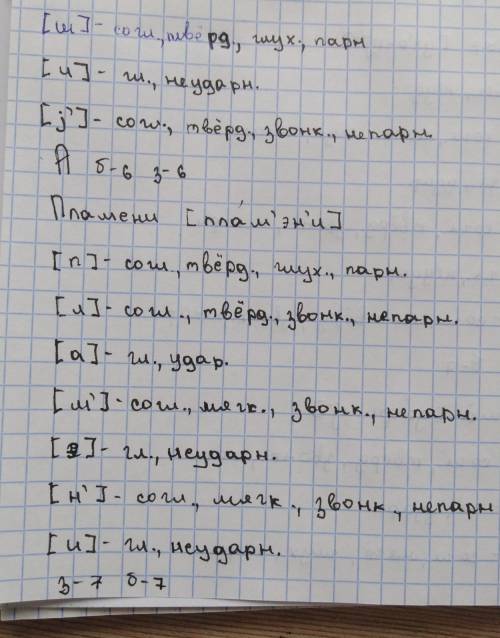 [ш] - согл., твёрд., глух., парн
[и] - гл., неударн.
[j'] - согл., твёрд., звонк., непарн.
А б-6 з-6
Пламени [пла́м'эн'и]
[п] - согл., твёрд., глух., парн.
[л] - согл., твёрд., звонк., непарн.
[а] - гл., удар.
[м'] - согл., мягк., звонк., непарн.
[э] - гл., неударн.
[н'] - согл., мягк., звонк., непарн
[и] - гл., неударн.
з-7 б-7